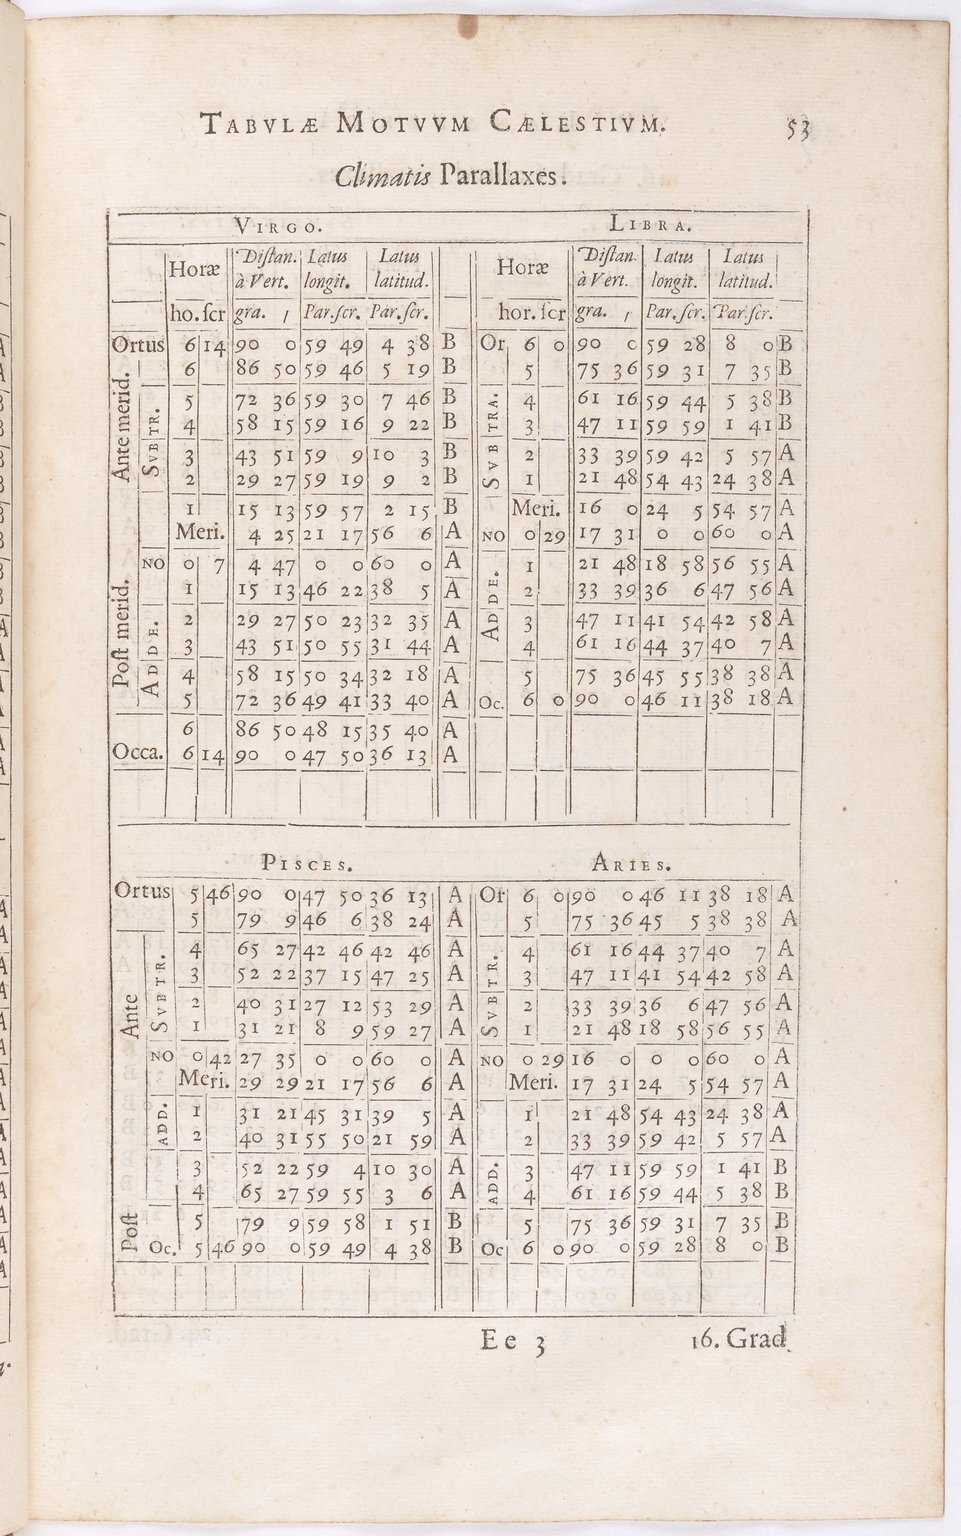 TABVLÆ MOTVVM CÆLESTIVM. 53
Climatis Parallaxes.
VIRGO. LIBRA.
Horæ Distan. à Vert. Latus longit. Latus latitud. Horæ Distan. à Vert. Latus longit. Latus latitud.
ho. scr gra. ′ Par. scr. Par. scr. hor. scr gra. ′ Par. scr. Par. scr.
Ortus 6 14 90 0 59 49 4 38 B Or 6 0 90 0 59 28 8 0 B
Ante merid. 6 86 50 59 46 5 19 B 5 75 36 59 31 7 35 B
SVBTR. 5 72 36 59 30 7 46 B SVBTRA. 4 61 16 59 44 5 38 B
4 58 15 59 16 9 22 B 3 47 11 59 59 1 41 B
3 43 51 59 9 10 3 B 2 33 39 59 42 5 57 A
2 29 27 59 19 9 2 B 1 21 48 54 43 24 38 A
1 15 13 59 57 2 15 B Meri. 16 0 24 5 54 57 A
Meri. 4 25 21 17 56 6 A NO 0 29 17 31 0 0 60 0 A
Post merid. NO 0 7 4 47 0 0 60 0 A ADDE. 1 21 48 18 58 56 55 A
1 15 13 46 22 38 5 A 2 33 39 36 6 47 56 A
ADDE. 2 29 27 50 23 32 35 A 3 47 11 41 54 42 58 A
3 43 51 50 55 31 44 A 4 61 16 44 37 40 7 A
4 58 15 50 34 32 18 A 5 75 36 45 55 38 38 A
5 72 36 49 41 33 40 A Oc. 6 0 90 0 46 11 38 18 A
6 86 50 48 15 35 40 A
Occa. 6 14 90 0 47 50 36 13 A
PISCES. ARIES.
Ortus 5 46 90 0 47 50 36 13 A Or 6 0 90 0 46 11 38 18 A
5 79 9 46 6 38 24 A 5 75 36 45 5 38 38 A
Ante SVBTR. 4 65 27 42 46 42 46 A SVBTR. 4 61 16 44 37 40 7 A
3 52 22 37 15 47 25 A 3 47 11 41 54 42 58 A
2 40 31 27 12 53 29 A 2 33 39 36 6 47 56 A
1 31 21 8 9 59 27 A 1 21 48 18 58 56 55 A
NO 0 42 27 35 0 0 60 0 A NO 0 29 16 0 0 0 60 0 A
Meri. 29 29 21 17 56 6 A Meri. 17 31 24 5 54 57 A
ADD. 1 31 21 45 31 39 5 A 1 21 48 54 43 24 38 A
2 40 31 55 50 21 59 A 2 33 39 59 42 5 57 A
3 52 22 59 4 10 30 A ADD. 3 47 11 59 59 1 41 B
4 65 27 59 55 3 6 A 4 61 16 59 44 5 38 B
Post 5 79 9 59 58 1 51 B 5 75 36 59 31 7 35 B
Oc. 5 46 90 0 59 49 4 38 B Oc 6 0 90 0 59 28 8 0 B
Ee 3 16. Grad.